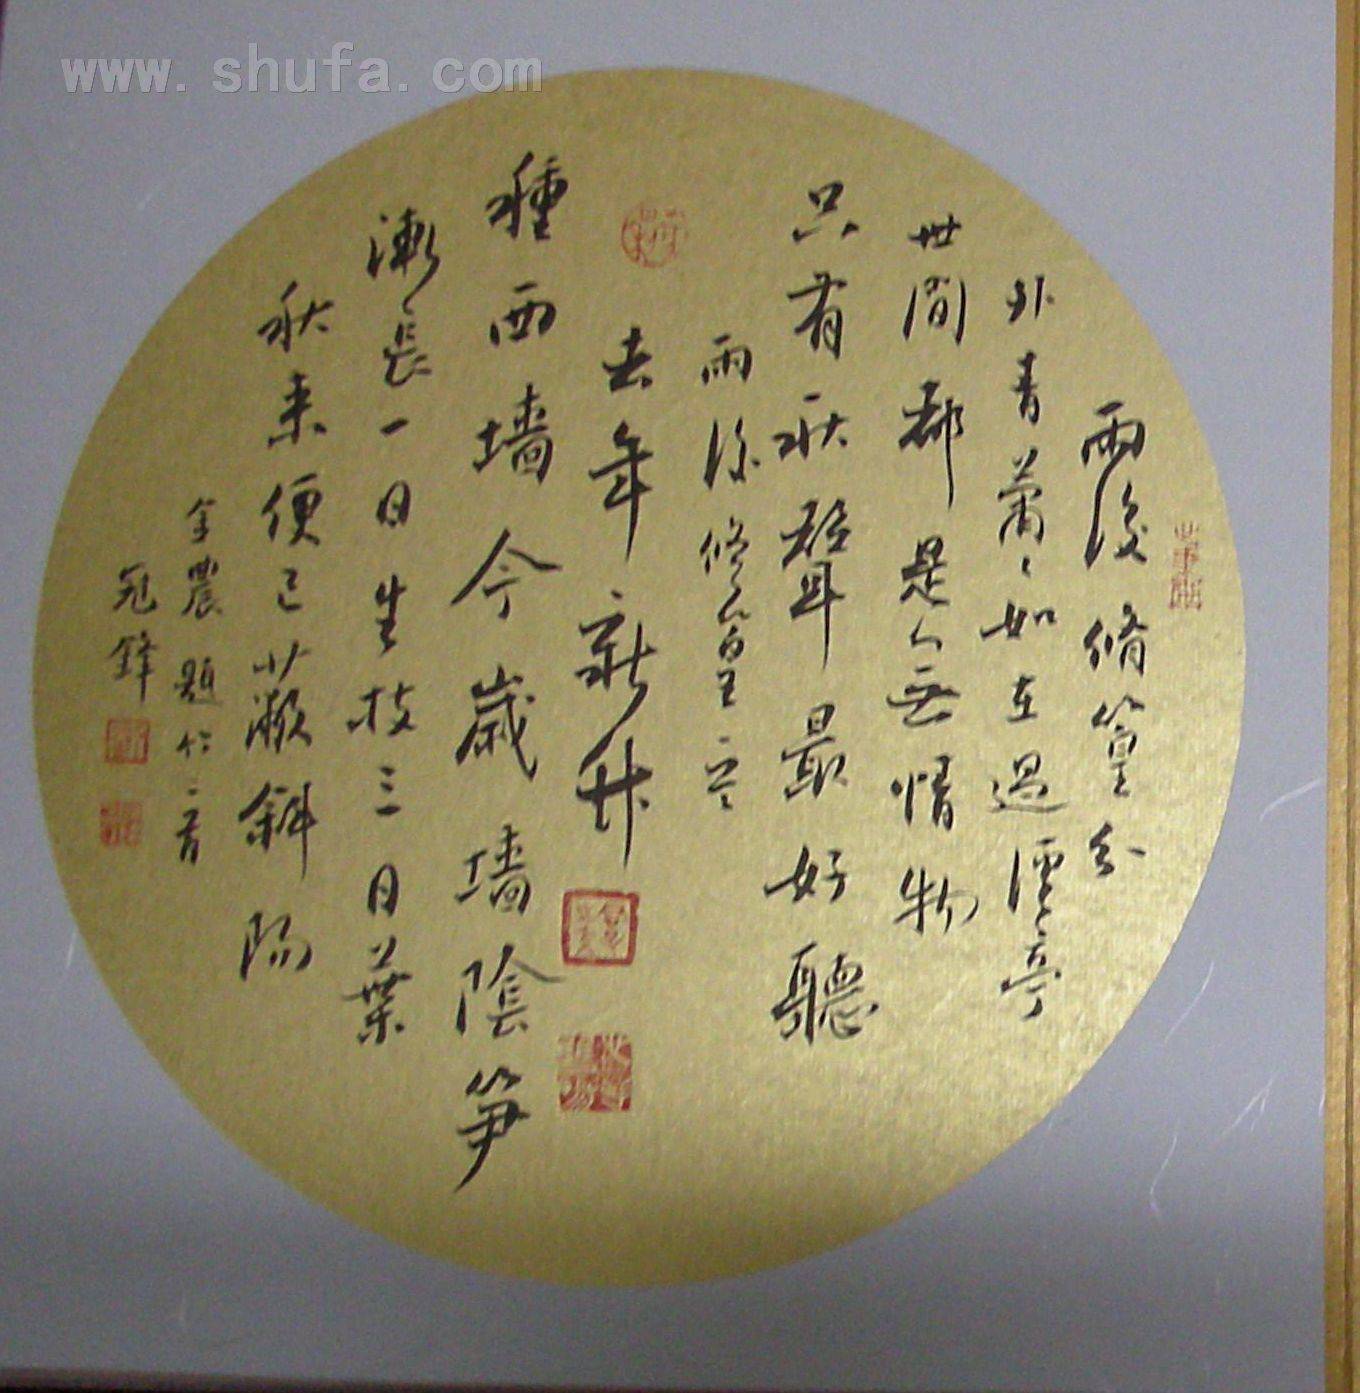 www.shufa.com
雨後脩篁分
外青蕭〻如在過溪亭
世間都是無情物
只有秋聲最好聽
雨後修篁
去年新竹
種西墙今歲墙陰笋
漸長一日生枝三日葉
秋来便已蔽斜陽
金農題竹二首
冠鋒